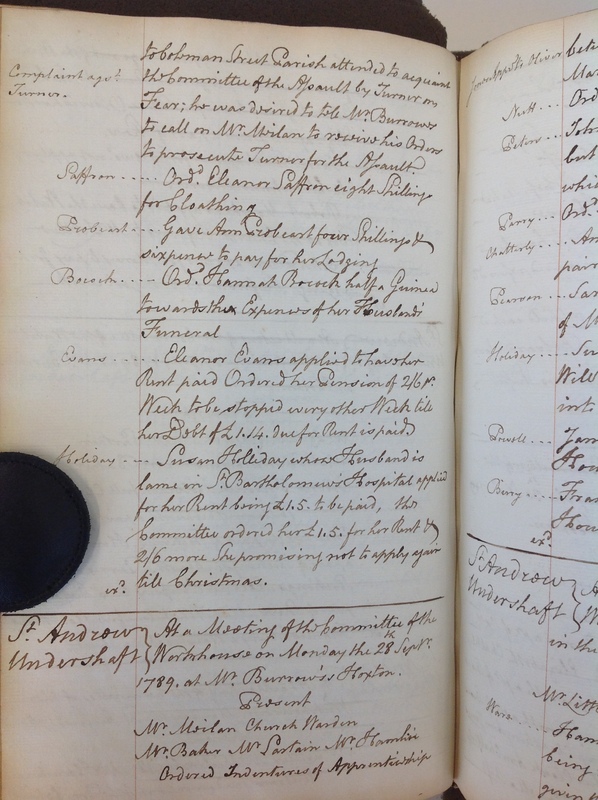 to Colman Street Parish attended to acquaint
Complaint agst. the Committee of the Assault by Turner on
Turner. Fear; he was desired to tell Mr. Burrows
to call on Mr. Moilan to receive his Orders
to prosecute Turner for the Assault.
Saffron ---- Ord.d Eleanor Saffron eight Shillings
for Cloathing
Probeart ---- Gave Ann Probeart four Shillings &
sixpence to pay for her Lodging
Bocock ---- Ord.d Hannah Bocock half a Guinea
towards the Expences of her Husband's
Funeral
Evans ------ Eleanor Evans applied to have her
Rent paid Ordered her Pension of 2/6 Pr.
Week to be stopped every other Week till
her Debt of £1.14. due for Rent is paid
Holiday ---- Susan Holleday whose Husband is
lame in St. Bartholomews Hospital applied
for her Rent being £1.5. to be paid, the
Committee ordered her £1.5. for her Rent &
2/6 more She promising not to apply again
exd. till Christmas.
St. Andrew } At a Meeting of the Committee of the
Undershaft } Workhouse on Monday the 28th Septr.
1789. at Mr. Burrows's Hoxton.
Present
Mr. Moilan Church Warden
Mr. Baker Mr. Sartain Mr. Hamlin
Ordered Indentures of Apprenticeship
Oliver
Nutt --- Ord
Peters --- John
but
whi
Parry --- Ord.d
Chatterly --- An
pair
Pearson --- Sar
of M
Holiday ---
Will
into
Powell --- Jam
Hou
Berry ---- Fran
Hou
exd.
St. Andrew }
Undershaft }
in the
Mr. Litt
Ware ---- Hann
being
given